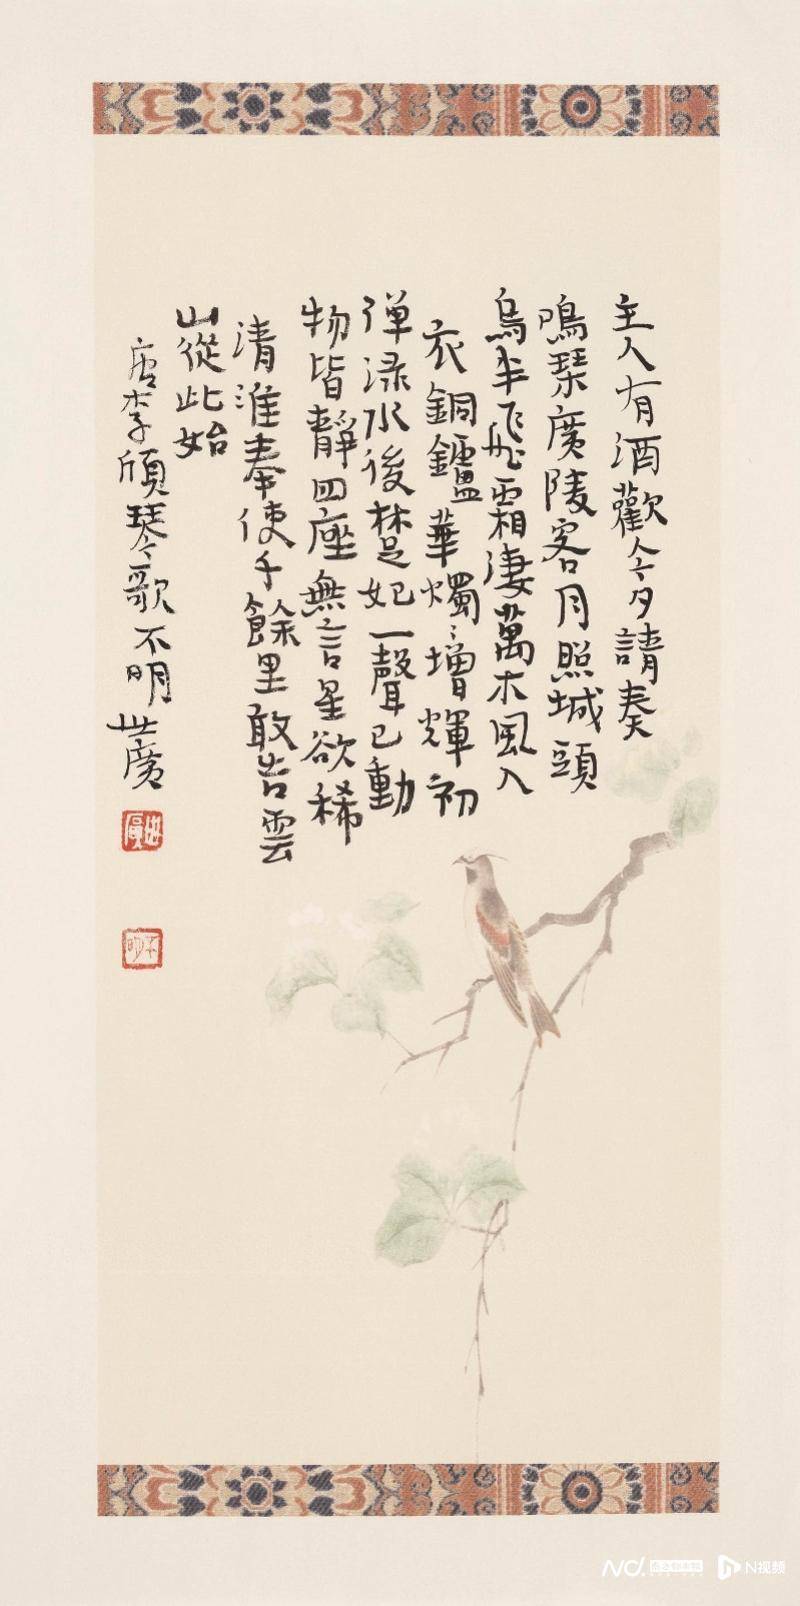 主人有酒歡今夕請奏
鳴琹廣陵客月照城頭
烏半飛霜淒萬木風入
衣銅鑪華燭燭增輝初
彈渌水後楚妃一聲已動
物皆靜四座無言星欲稀
清淮奉使千餘里敢告雲
山從此始
唐李頎琴歌不明世廣
世廣
不明
N视频